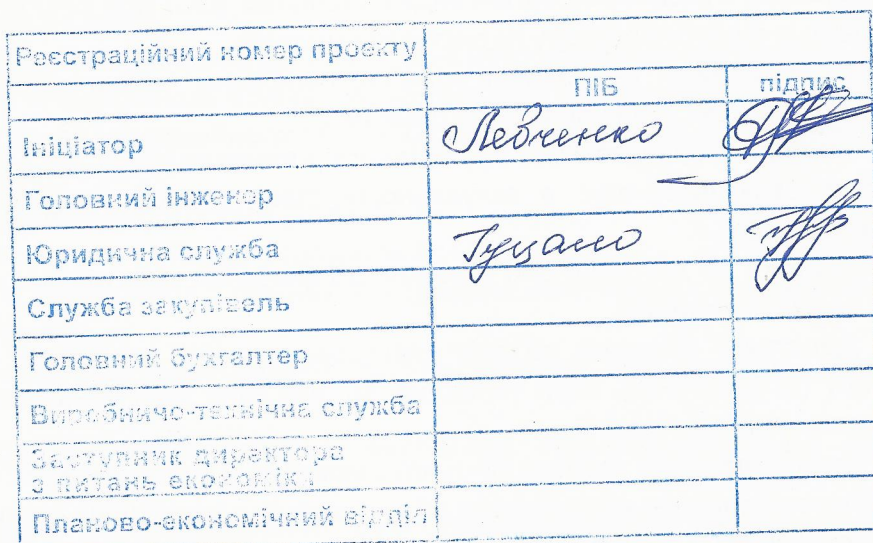 Реєстраційний номер проекту
ПІБ підпис
Ініціатор Левченко
Головний інженер
Юридична служба
Служба закупівель
Головний бухгалтер
Виробничо-технічна служба
Заступник директора
з питань економіки
Планово-економічний відділ